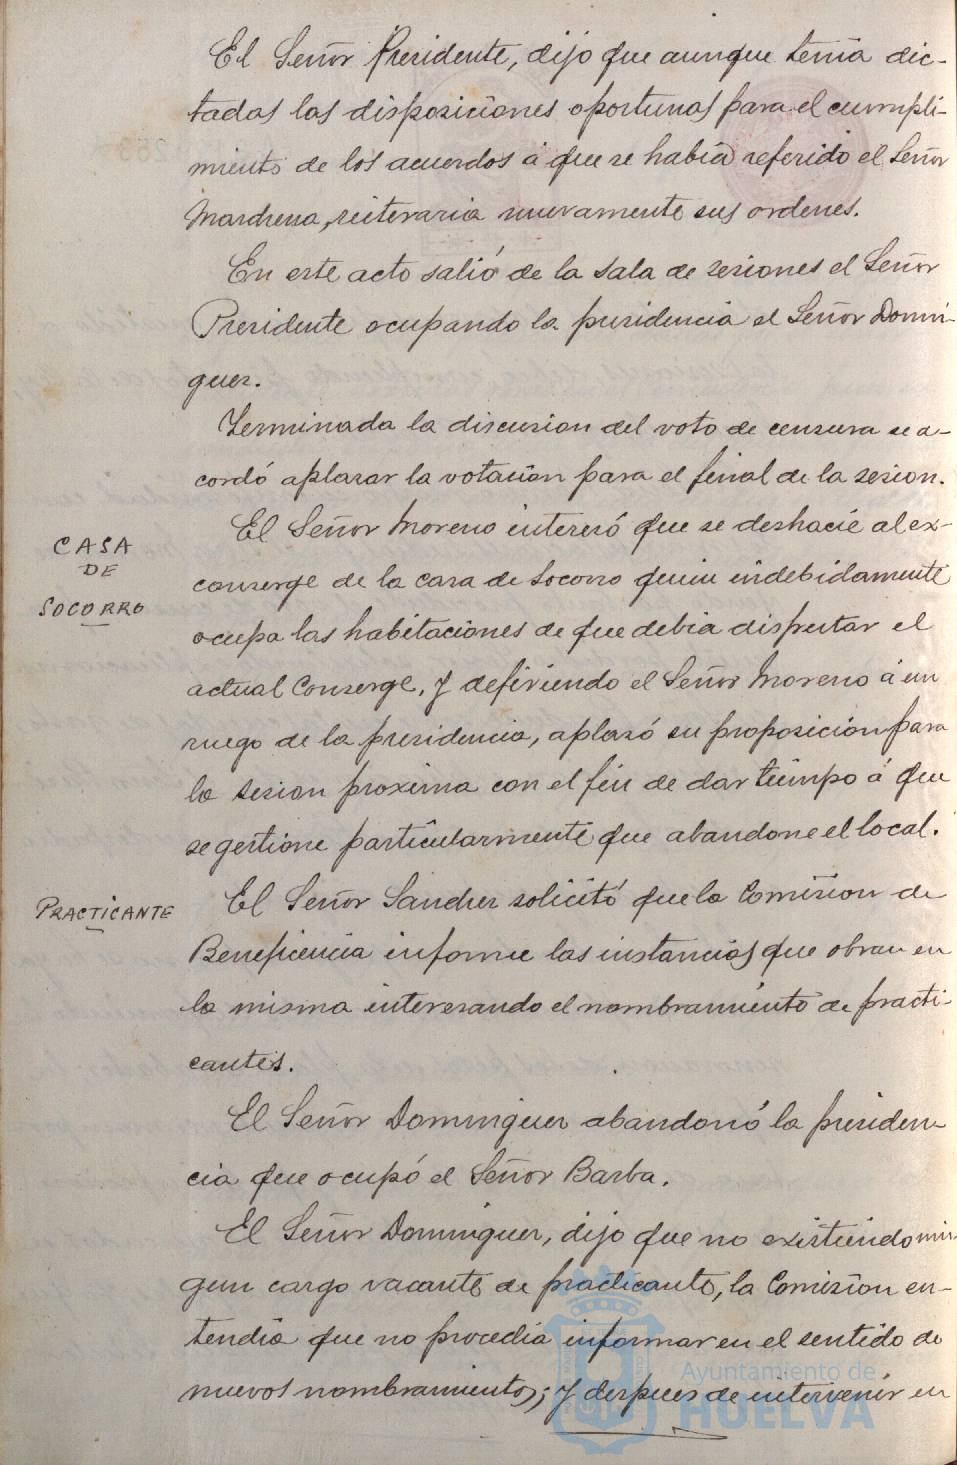 El Señor Presidente, dijo que aunque tenia dic-
tadas las disposiciones oportunas para el cumpli-
miento de los acuerdos á que se habia referido el Señor
Marchena, reiteraria nuevamente sus ordenes.
En este acto salió de la sala de sesiones el Señor
Presidente ocupando la presidencia el Señor Domin-
guez.
Terminada la discusion del voto de censura se a-
cordó aplazar la votacion para el final de la sesion.
CASA
DE
SOCORRO
El Señor Moreno interesó que se deshacie al ex-
conserge de la casa de Socorro quien indebidamente
ocupa las habitaciones de que debia disfrutar el
actual Conserge. Y defiriendo el Señor Moreno á un
ruego de la presidencia, aplazó su proposicion para
la sesion proxima con el fin de dar tiempo á que
se gestione particularmente que abandone el local.
PRACTICANTE
El Señor Sanchez solicitó que la Comision de
Beneficencia informe las instancias que obran en
la misma interesando el nombramiento de practi-
cantes.
El Señor Dominguez abandonó la presiden
cia que ocupó el Señor Barba.
El Señor Dominguez, dijo que no existiendo nin
gun cargo vacante de practicante, la Comision en-
tendia que no procedia informar en el sentido de
nuevos nombramientos; Y despues de intervenir en
Ayuntamiento de
HUELVA